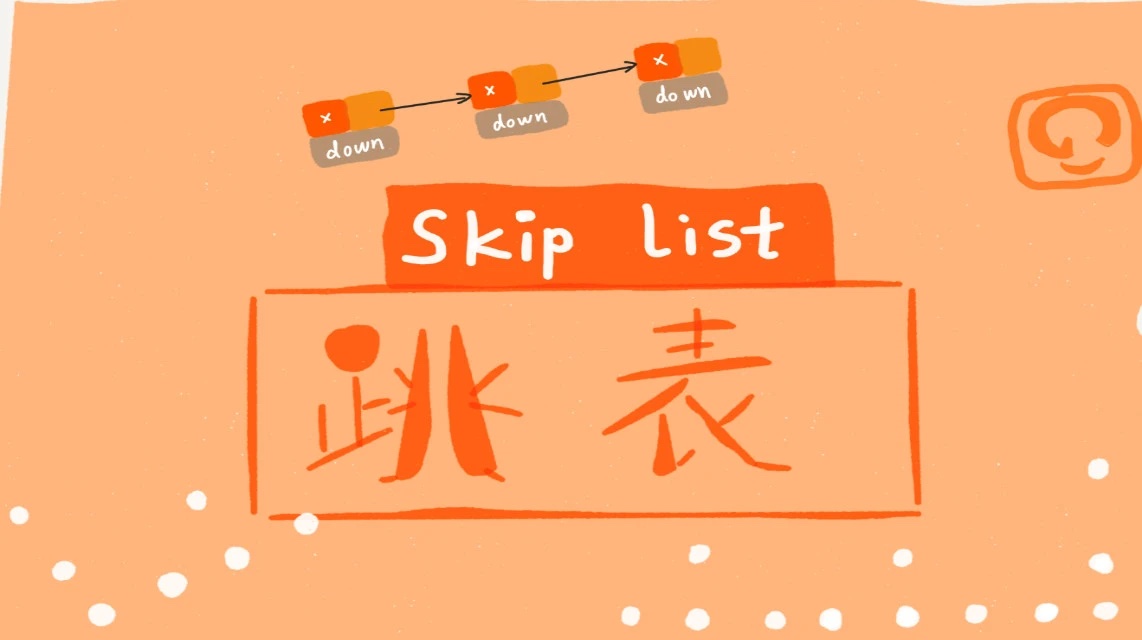 x
down
x
down
x
down
Skip list
跳表